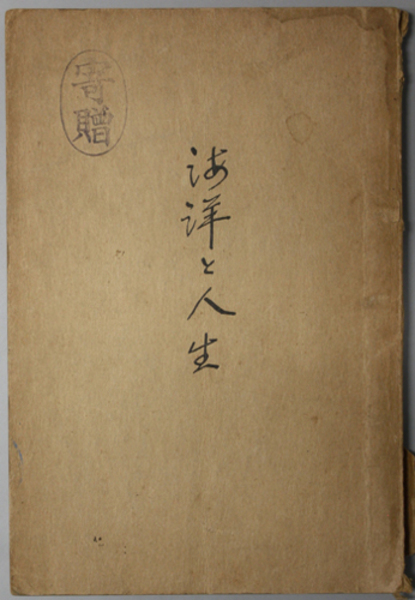 海洋と人生
寄贈